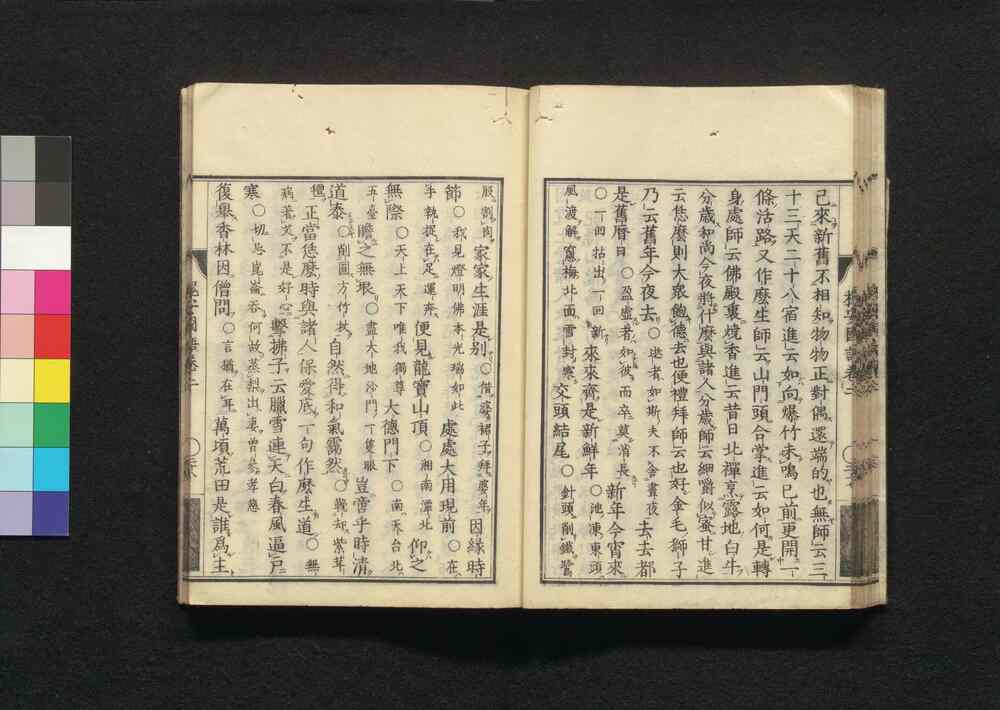 已來新舊不相知物物正對偶還端的也無師云三
十三天二十八宿進云如向爆竹未鳴已前更開一
條活路又作麼生師云山門頭合掌進云如何是轉
身處師云佛殿裏燒香進云昔日北禪烹露地白牛
分歲和尚今夜將什麼與諸人分歲師云細嚼似蜜甘進
云恁麼則大衆飽德去也便禮拜師云也好金毛獅子
乃云舊年今夜去○逝者如斯夫不舍晝夜去去都
是舊曆日○盈虛者如彼而卒莫消長新年今宵來
○一回拈出一回新來來齊是新鮮年○池凍東頭
風渡解窻梅北面雪封寒交頭結尾○針頭削鐵
股割肉家家生涯是別○借婆裙子拜婆年因緣時
節○我見燈明佛本光瑞如此處處大用現前○在
手執捉在足運奔便見龍寶山頂○湘南潭北仰之
無際○天上天下唯我獨尊大德門下○南天台北
五臺瞻之無垠○盡大地沙門一隻眼豈啻乎時清
道泰○削圓方竹杖自然得和氣靄然○戰却紫茸
氊正當恁麼時與諸人保愛底一句作麼生道○無
病著灸不是好心擊拂子云臘雪連天白春風逼戶
寒○切忌崑崙吞何故蒸梨出妻曾參孝應
復舉香林因僧問○言猶在耳萬頃荒田是誰爲主